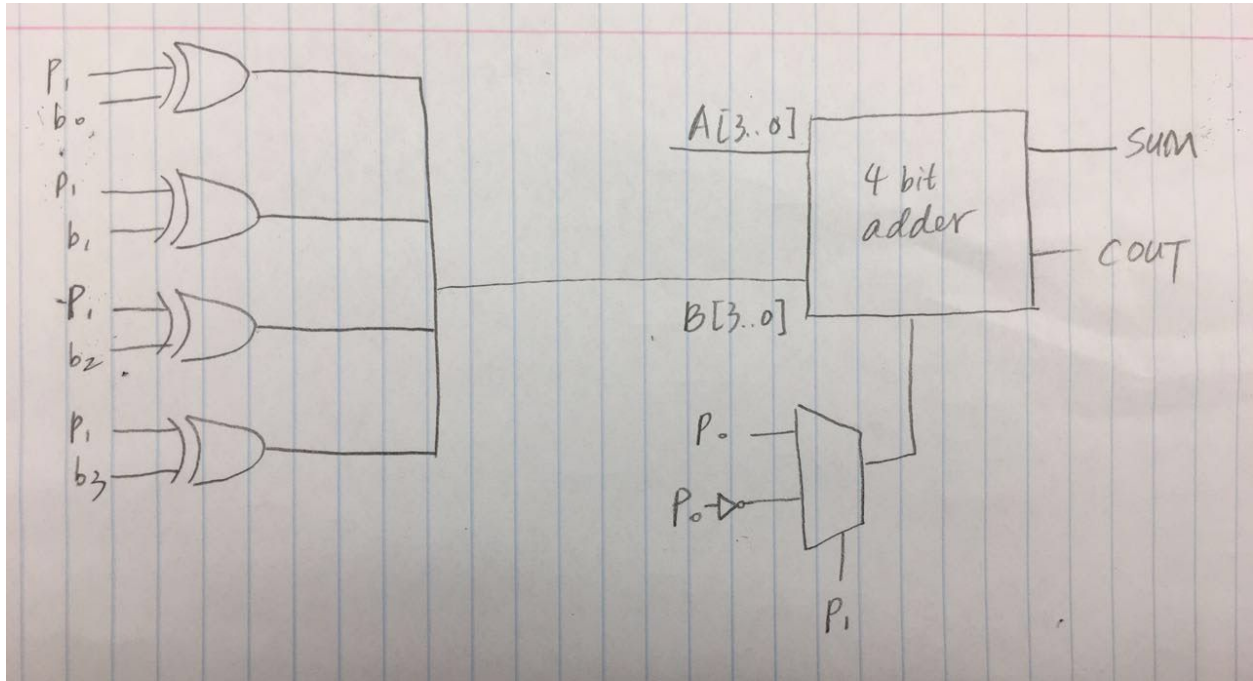 P₁
b₀
P₁
b₁
P₁
b₂
P₁
b₃
A[3..0]
B[3..0]
4 bit
adder
SUM
COUT
P₀
P₀
P₁